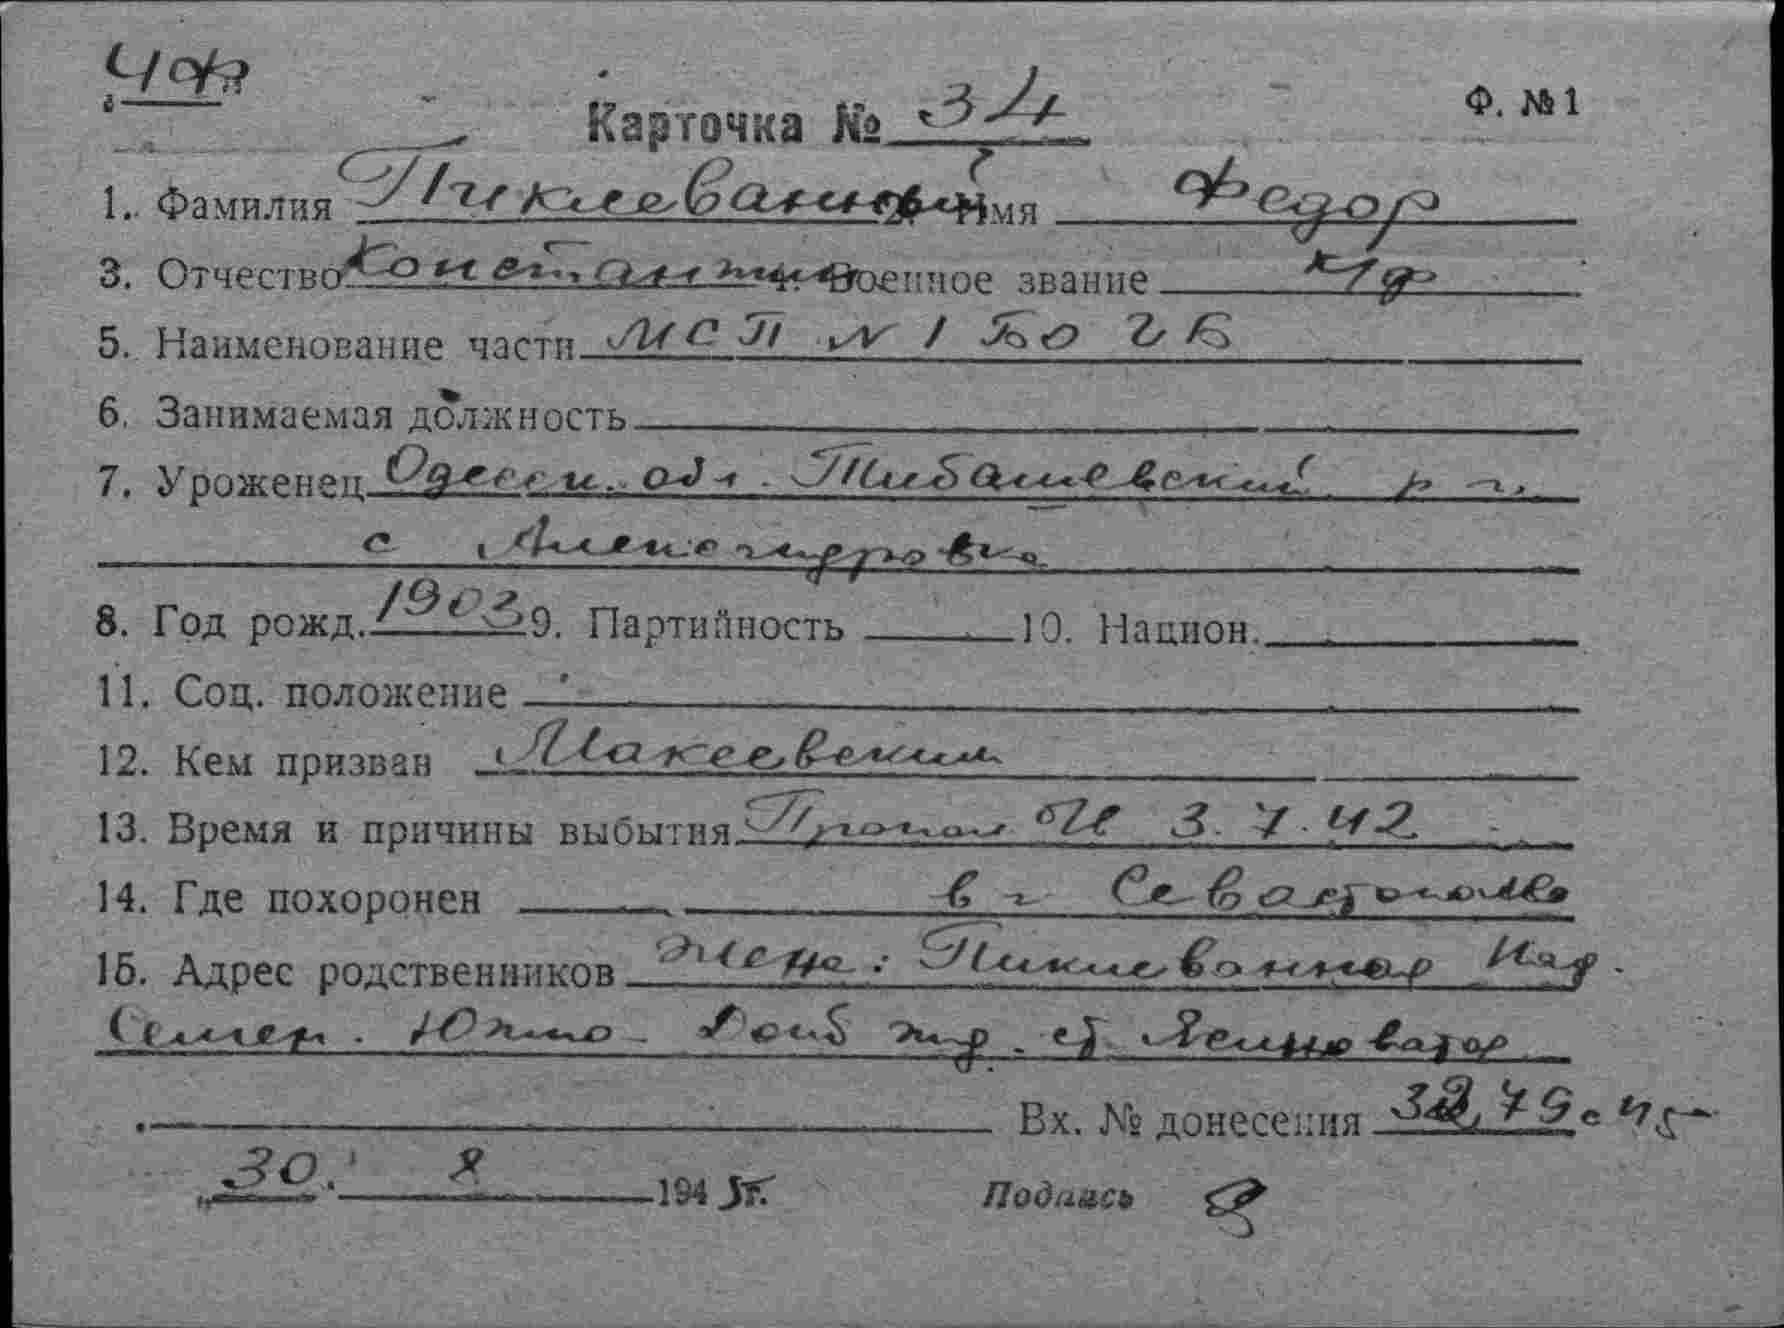 ЧФ
Карточка № 34
Ф. № 1
1. Фамилия Пиклеванный Имя Федор
3. Отчество Константин Военное звание к/ф
5. Наименование части МСП № 1 БО ГБ
6. Занимаемая должность
7. Уроженец Одесск. обл.
с Александровка
8. Год рожд. 1903 9. Партийность 10. Национ.
11. Соц. положение
12. Кем призван Макеевским
13. Время и причины выбытия Пропал 3.7.42
14. Где похоронен в г Севастополе
15. Адрес родственников Жена: Пиклеванная
Донб ст
Вх. № донесения
„30. 8 1945г.
Подпись